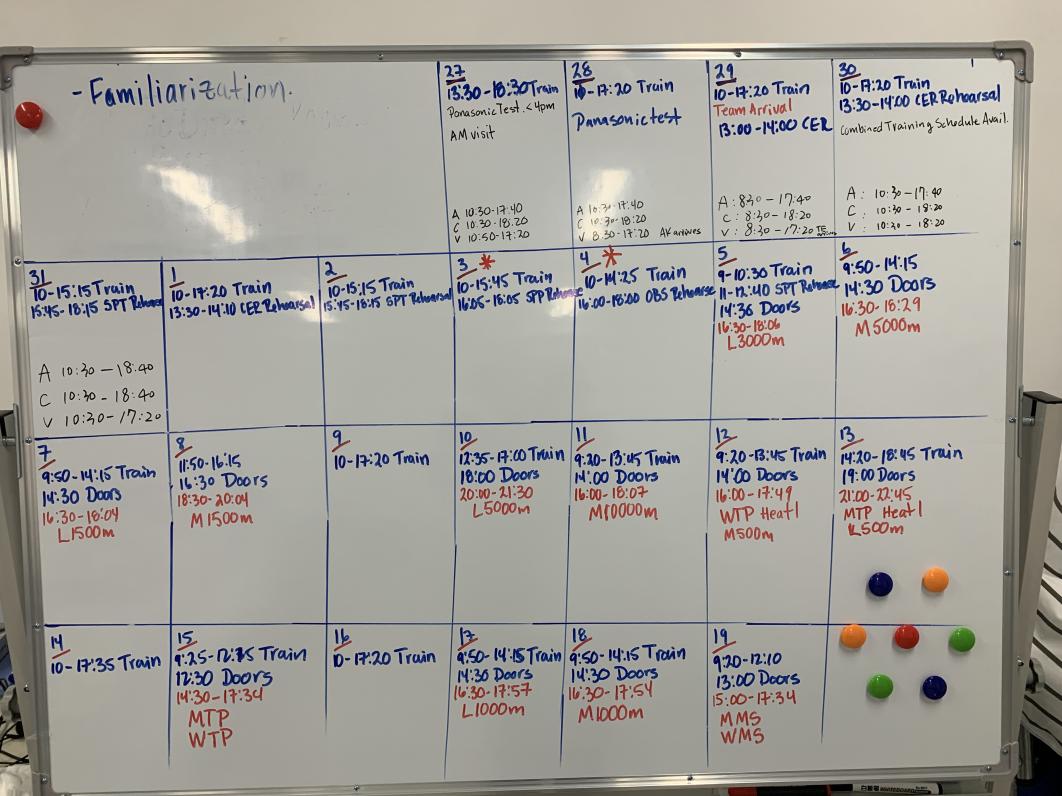 - Familiarization.
27
13:30-18:30 Train
Panasonic Test. <4pm
AM visit
A 10:30-17:40
C 10:30-18:20
V 10:50-17:20
28
10-17:20 Train
Panasonic test
A 10:30-17:40
C 10:30-18:20
V 8:30-17:20 AK arrives
29
10-17:20 Train
Team Arrival
13:00-14:00 CER
A: 8:30-17:40
C: 8:30-18:20
V: 8:30-17:20 TE
30
10-17:20 Train
13:30-14:00 CER Rehearsal
Combined Training Schedule Avail.
A: 10:30-17:40
C: 10:30-18:20
V: 10:30-18:20
31
10-15:15 Train
15:45-18:15 SPT Rehearse
A 10:30-18:40
C 10:30-18:40
V 10:30-17:20
1
10-17:20 Train
13:30-14:10 CER Rehearsal
2
10-15:15 Train
15:45-18:15 SPT Rehearsal
3 *
10-15:45 Train
16:05-18:05 SPP Rehearse
4 *
10-14:25 Train
16:00-18:00 OBS Rehearse
5
9-10:30 Train
11-12:40 SPT Rehearse
14:30 Doors
16:30-18:06
L3000m
6
9:50-14:15
14:30 Doors
16:30-18:29
M5000m
7
9:50-14:15 Train
14:30 Doors
16:30-18:04
L1500m
8
11:50-16:15
16:30 Doors
18:30-20:04
M1500m
9
10-17:20 Train
10
12:35-17:00 Train
18:00 Doors
20:00-21:30
L5000m
11
9:20-13:45 Train
14:00 Doors
16:00-18:07
M10000m
12
9:20-13:45 Train
14:00 Doors
16:00-17:49
WTP Heat 1
M500m
13
14:20-18:45 Train
19:00 Doors
21:00-22:45
MTP Heat 1
L500m
14
10-17:35 Train
15
9:25-12:15 Train
12:30 Doors
14:30-17:34
MTP
WTP
16
10-17:20 Train
17
9:50-14:15 Train
14:30 Doors
16:30-17:57
L1000m
18
9:50-14:15 Train
14:30 Doors
16:30-17:54
M1000m
19
9:20-12:10
13:00 Doors
15:00-17:34
MMS
WMS